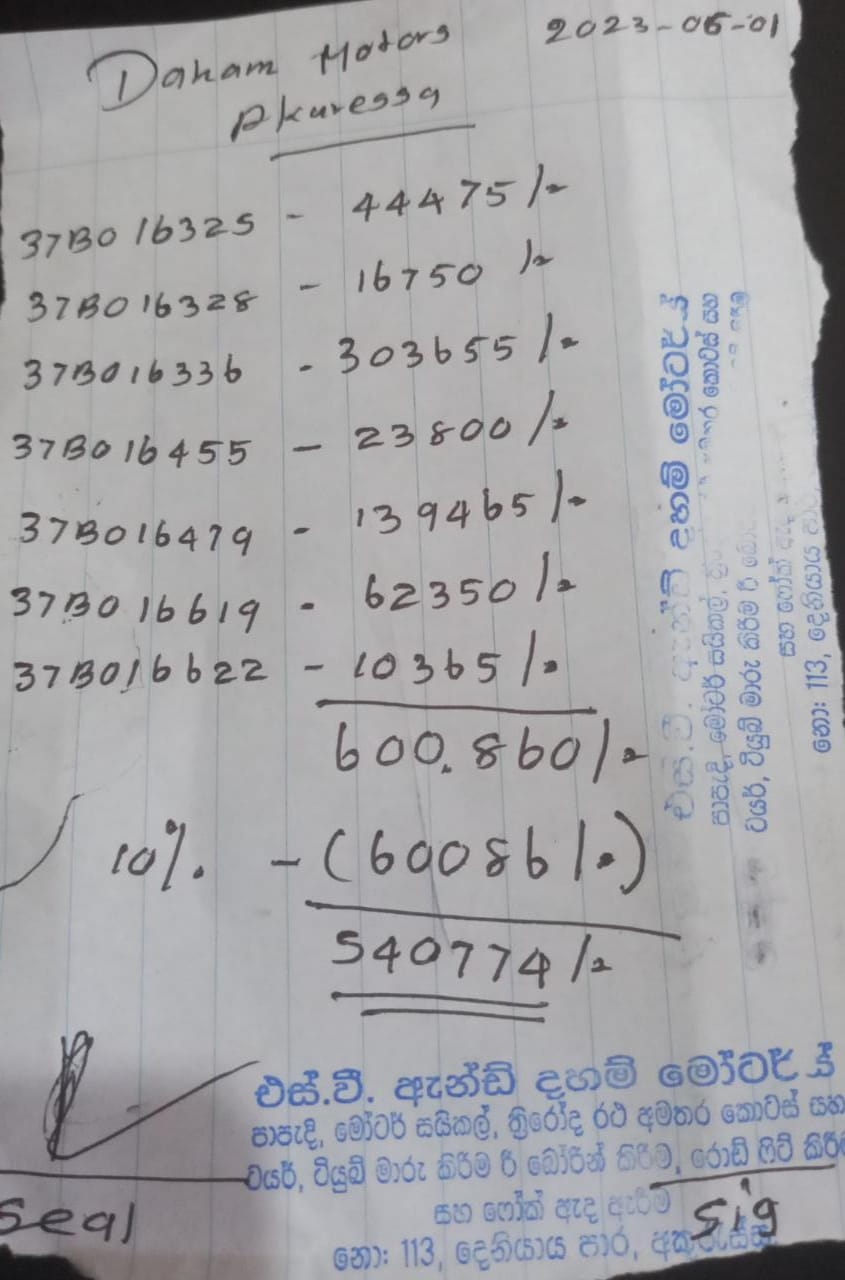 2023-06-01
Daham Motors
Akuressa
37B016325 - 44475/=
37B016328 - 16750/=
37B016336 - 303655/=
37B016455 - 23800/=
37B016479 - 139465/=
37B016619 - 62350/=
37B016622 - 10365/=
600.860/=
10%. - (60086/=)
540774/=
එස්.වී. ඇන්ඩ් දහම් මෝටර්ස්
පාපැදි, මෝටර් සයිකල්,
ටයර්, ටියුබ් මාරු කිරීම රී
සහ ෆෝක් ඇද
නො: 113, දෙනියාය පාර,
එස්.වී. ඇන්ඩ් දහම් මෝටර්ස්
පාපැදි, මෝටර් සයිකල්, ත්‍රීරෝද රථ අමතර කොටස් සහ
ටයර්, ටියුබ් මාරු කිරීම රී බෝරින් කිරීම, රොඩ් ෆිට් කිරීම
සහ ෆෝක් ඇද ඇරීම
නො: 113, දෙනියාය පාර, අකුරැස්ස.
Seal
Sig